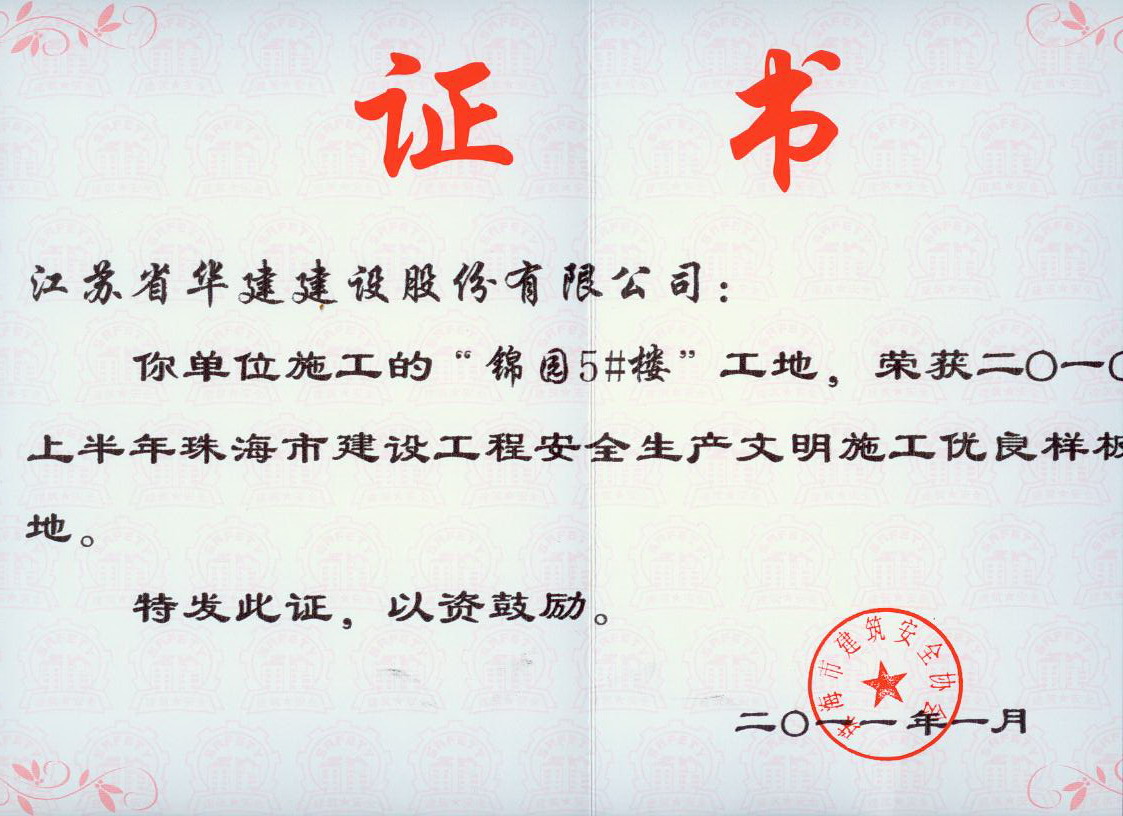 证书
江苏省华建建设股份有限公司：
你单位施工的“锦园5#楼”工地，荣获二〇一〇
上半年珠海市建设工程安全生产文明施工优良样板
地。
特发此证，以资鼓励。
珠海市建筑安全协会
二〇一一年一月